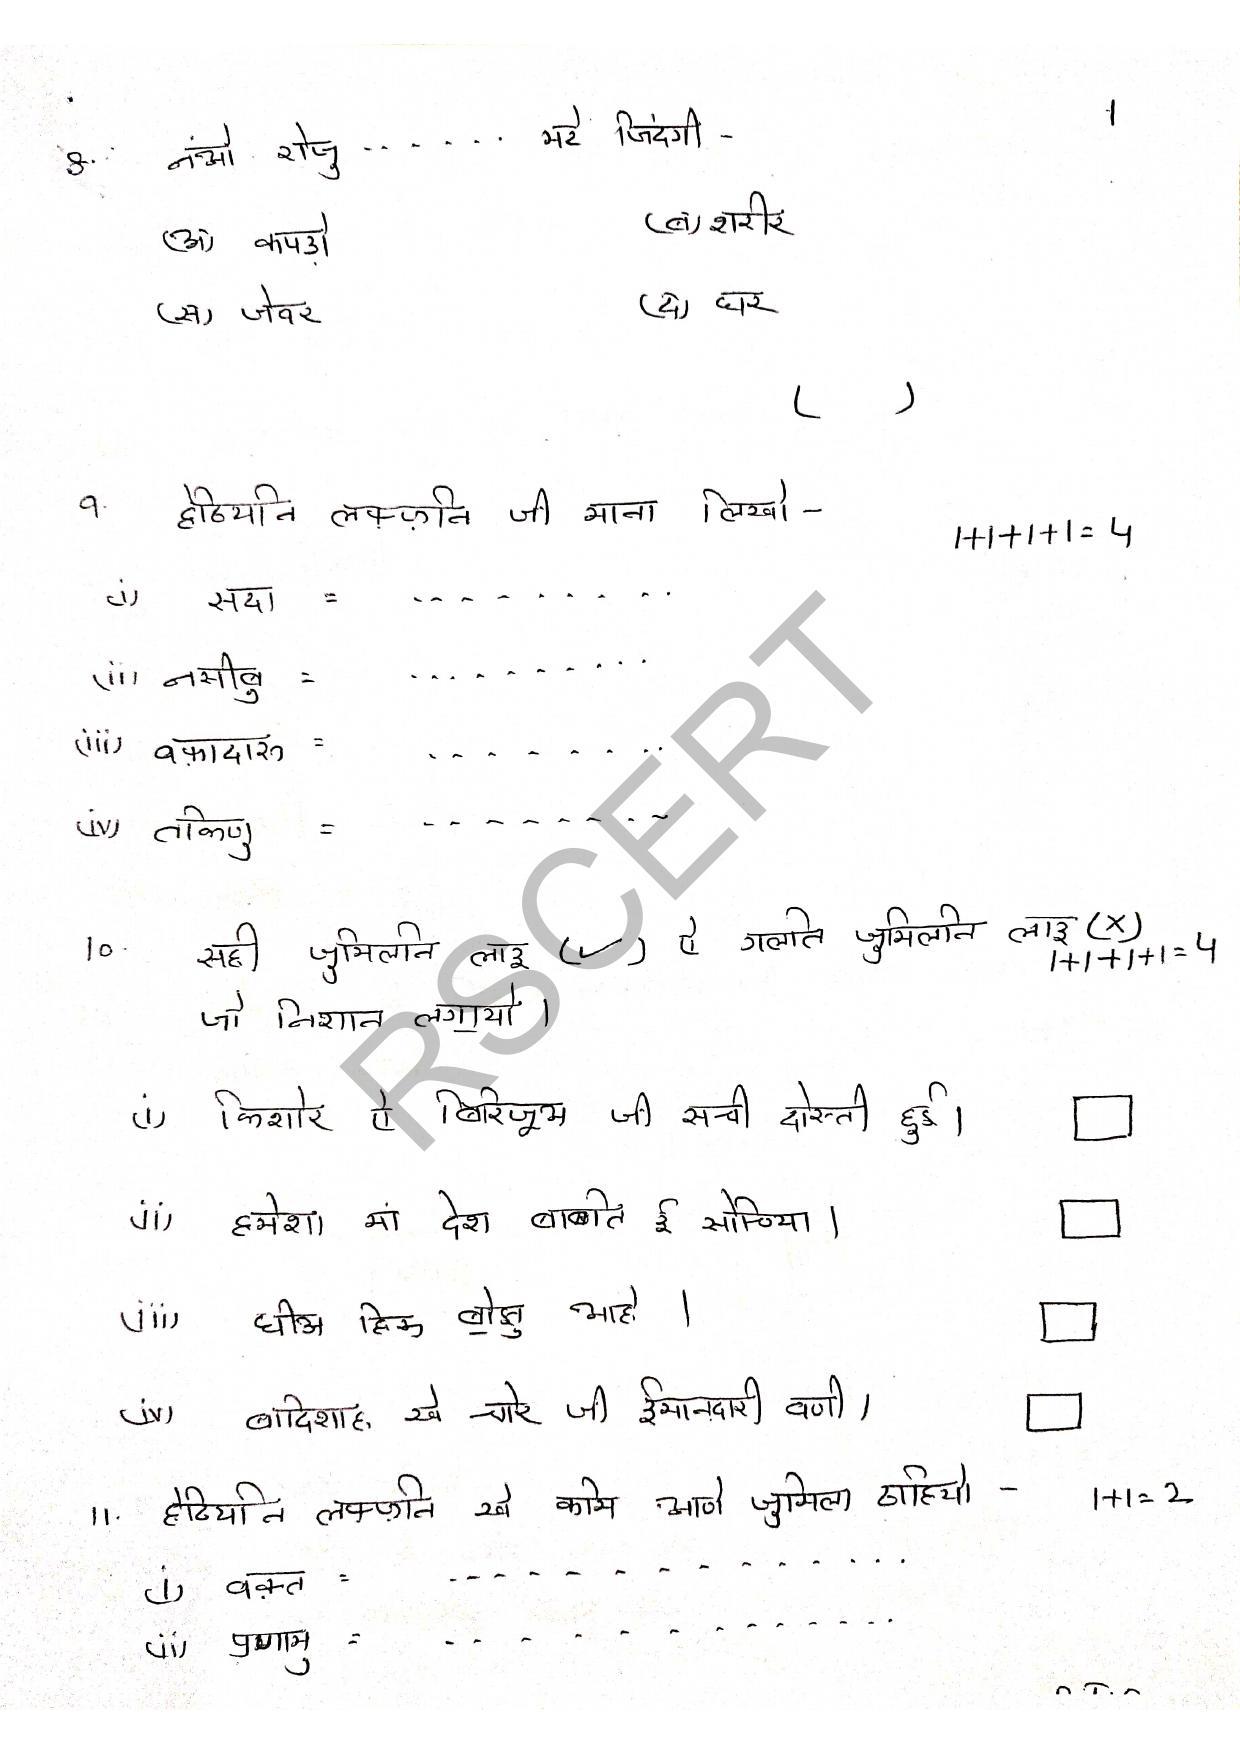 1
8. नंओं रोजु ...... भरे जिंदगी -
(अ) कपड़ो (ब) शरीर
(स) जेवर (द) घर
( )
9. हेठियनि लफ़्ज़नि जी माना लिखो - 1+1+1+1=4
(i) सदा = ..........
(ii) नसीबु = ..........
(iii) वफ़ादारु = ........
(iv) तकिणु = ........
10. सही जुमिलनि लाइ (✓) ऐं गलति जुमिलनि लाइ (X)
1+1+1+1=4
जो निशान लगा॒यो।
(i) किशोर ऐं जी सची दोस्ती हुई। □
(ii) हमेशा मां देश बाबति ई सोचिया। □
(iii) धीअ हिक बो॒झु आहे। □
(iv) बादिशाह खे चोर जी ईमानदारी वणी। □
11. हेठियनि लफ़्ज़नि खे कमि आणे जुमिला ठाहियो - 1+1=2
(i) वक़्त = ..............
(ii) प्रणामु = ..............